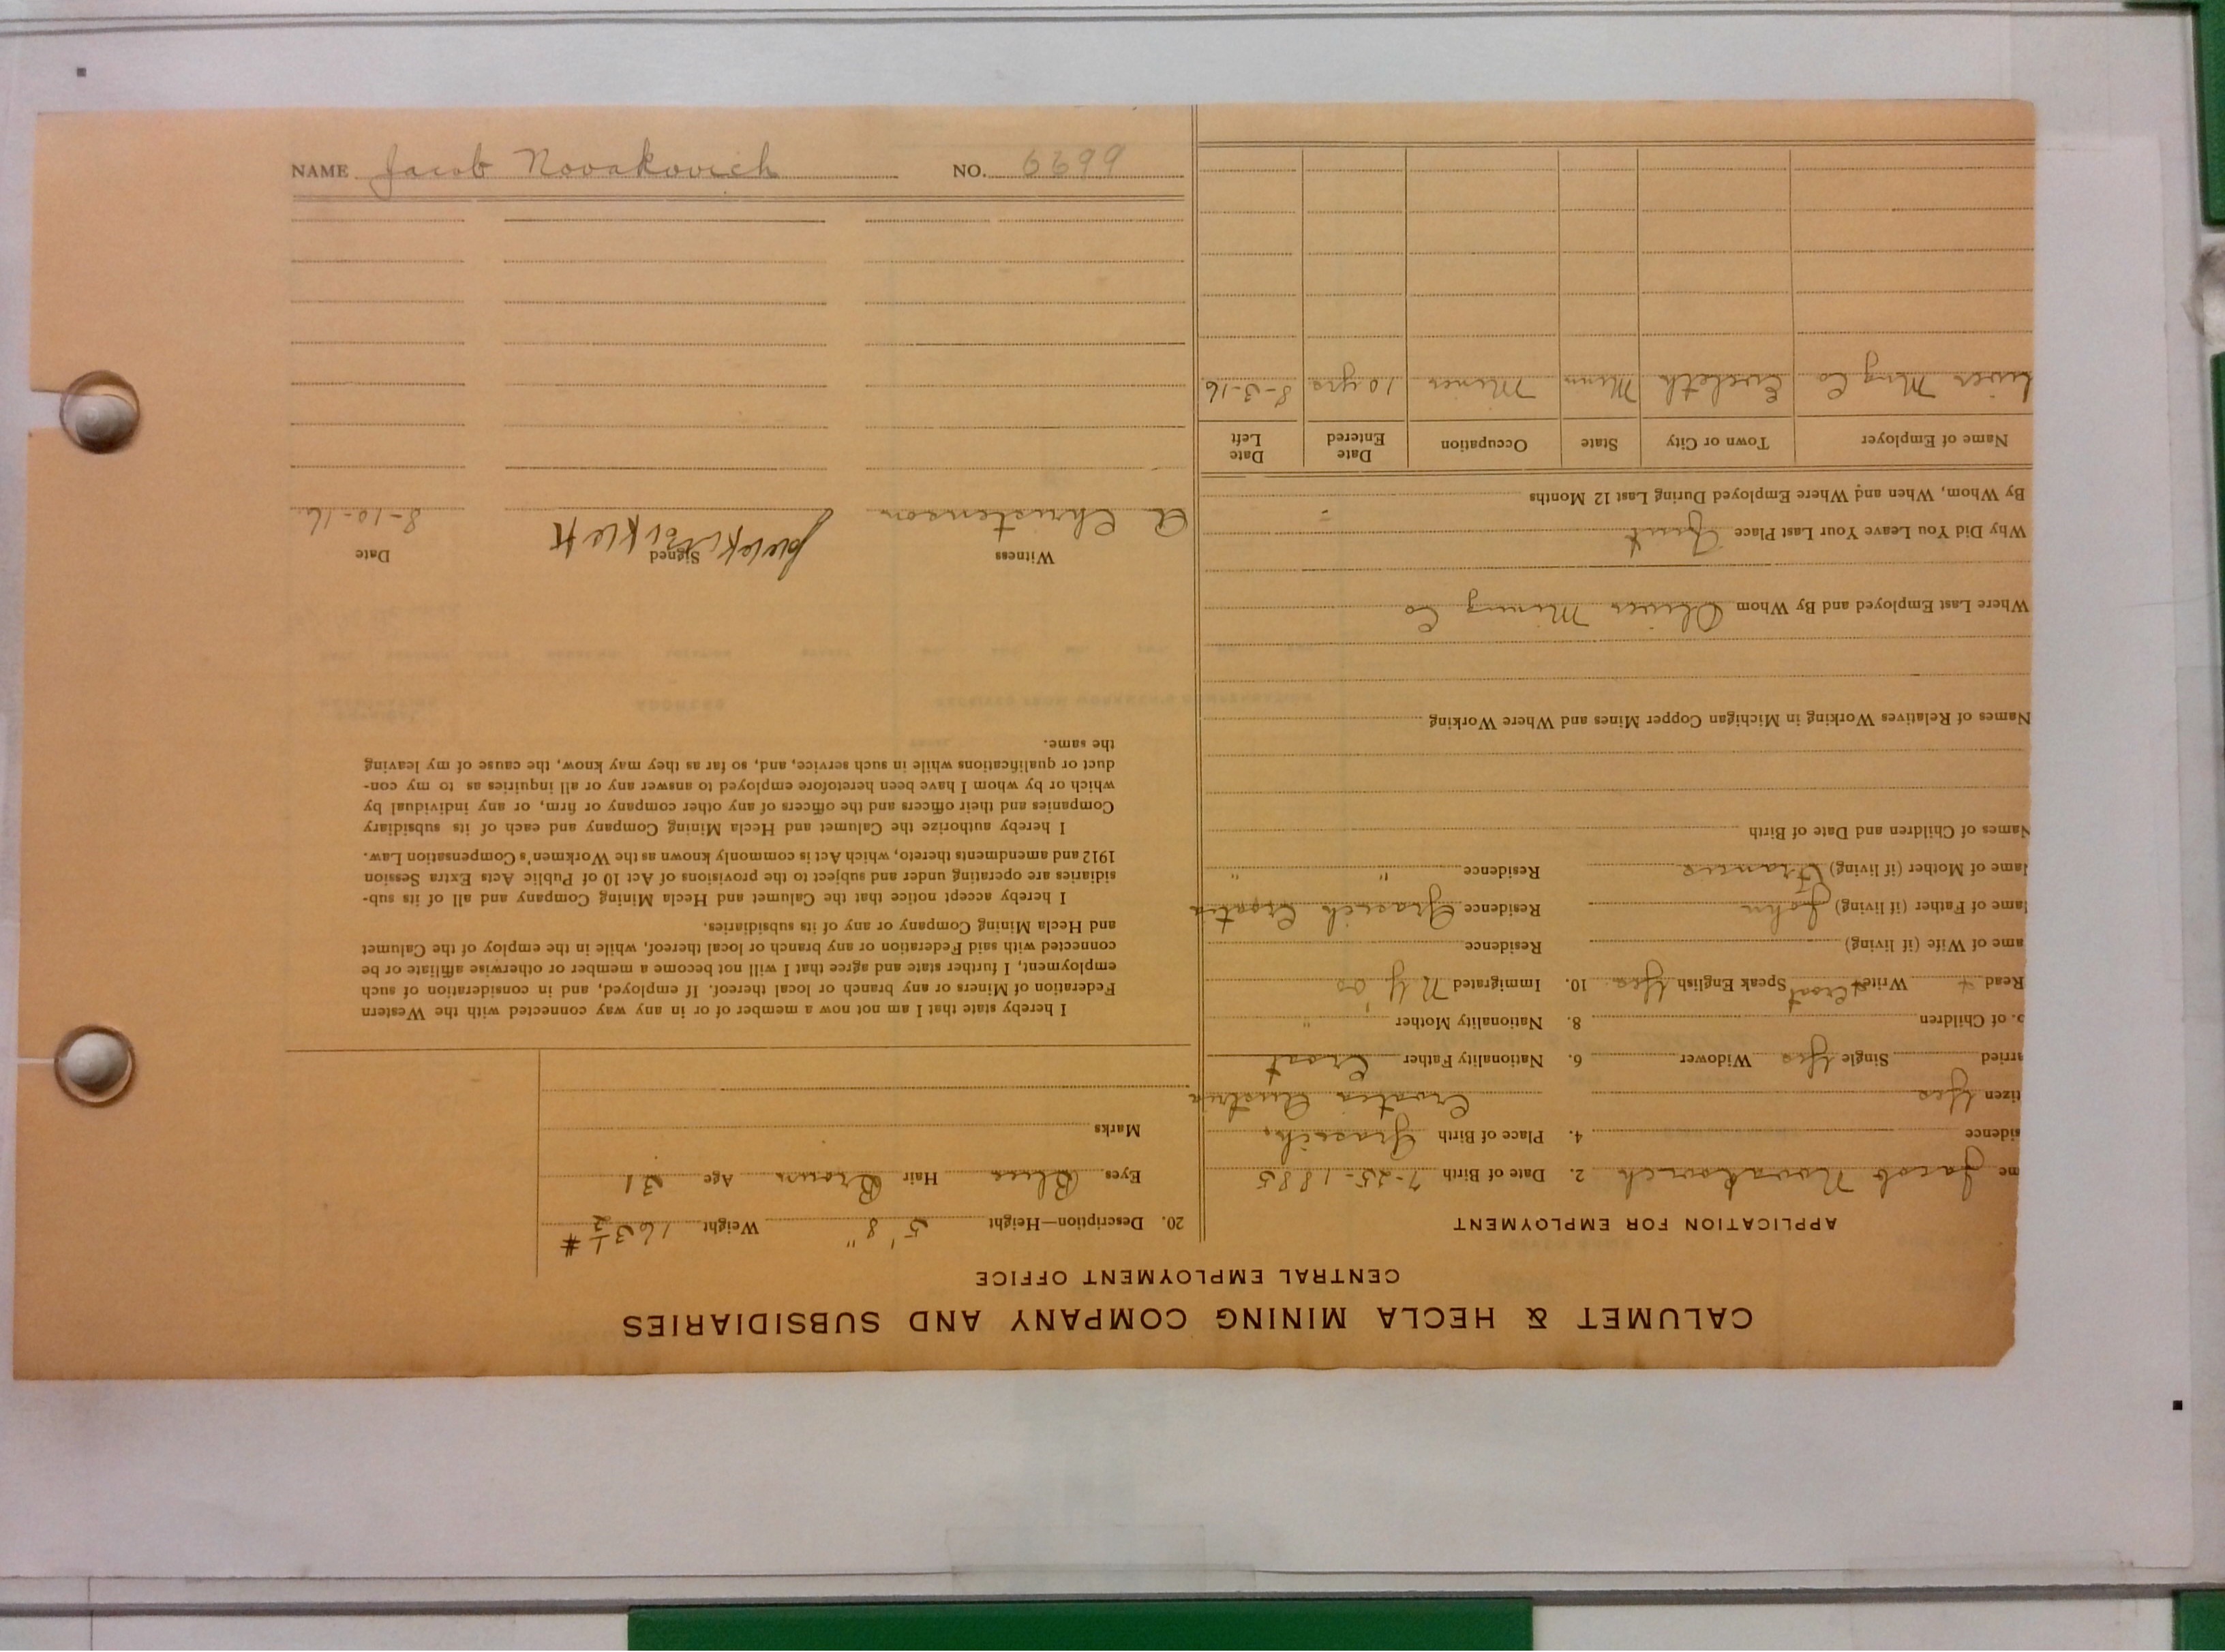 NAME Jacob Novakovich NO. 6699
CALUMET & HECLA MINING COMPANY AND SUBSIDIARIES
CENTRAL EMPLOYMENT OFFICE
APPLICATION FOR EMPLOYMENT
me Jacob Novakovich 2. Date of Birth 7-25-1885
sidence 4. Place of Birth
tizen Yes Croatia Austria
arried Single Yes Widower 6. Nationality Father Croat
o. of Children 8. Nationality Mother "
Read Write Croat Speak English Yes 10. Immigrated N Y
ame of Wife (if living) Residence
ame of Father (if living) John Residence Croatia
ame of Mother (if living) Francis Residence " "
Names of Children and Date of Birth
Names of Relatives Working in Michigan Copper Mines and Where Working
Where Last Employed and By Whom Oliver Mining Co
Why Did You Leave Your Last Place Quit
By Whom, When and Where Employed During Last 12 Months
Name of Employer Town or City State Occupation Date Entered Date Left
liver Mng Co Eveleth Minn Miner 10 yrs 8-3-16
20. Description—Height 5' 8" Weight 163½ #
Eyes Blue Hair Brown Age 31
Marks
I hereby state that I am not now a member of or in any way connected with the Western
Federation of Miners or any branch or local thereof. If employed, and in consideration of such
employment, I further state and agree that I will not become a member or otherwise affiliate or be
connected with said Federation or any branch or local thereof, while in the employ of the Calumet
and Hecla Mining Company or any of its subsidiaries.
I hereby accept notice that the Calumet and Hecla Mining Company and all of its sub-
sidiaries are operating under and subject to the provisions of Act 10 of Public Acts Extra Session
1912 and amendments thereto, which Act is commonly known as the Workmen's Compensation Law.
I hereby authorize the Calumet and Hecla Mining Company and each of its subsidiary
Companies and their officers and the officers of any other company or firm, or any individual by
which or by whom I have been heretofore employed to answer any or all inquiries as to my con-
duct or qualifications while in such service, and, so far as they may know, the cause of my leaving
the same.
Witness Signed Date
A Christenson 8-10-16